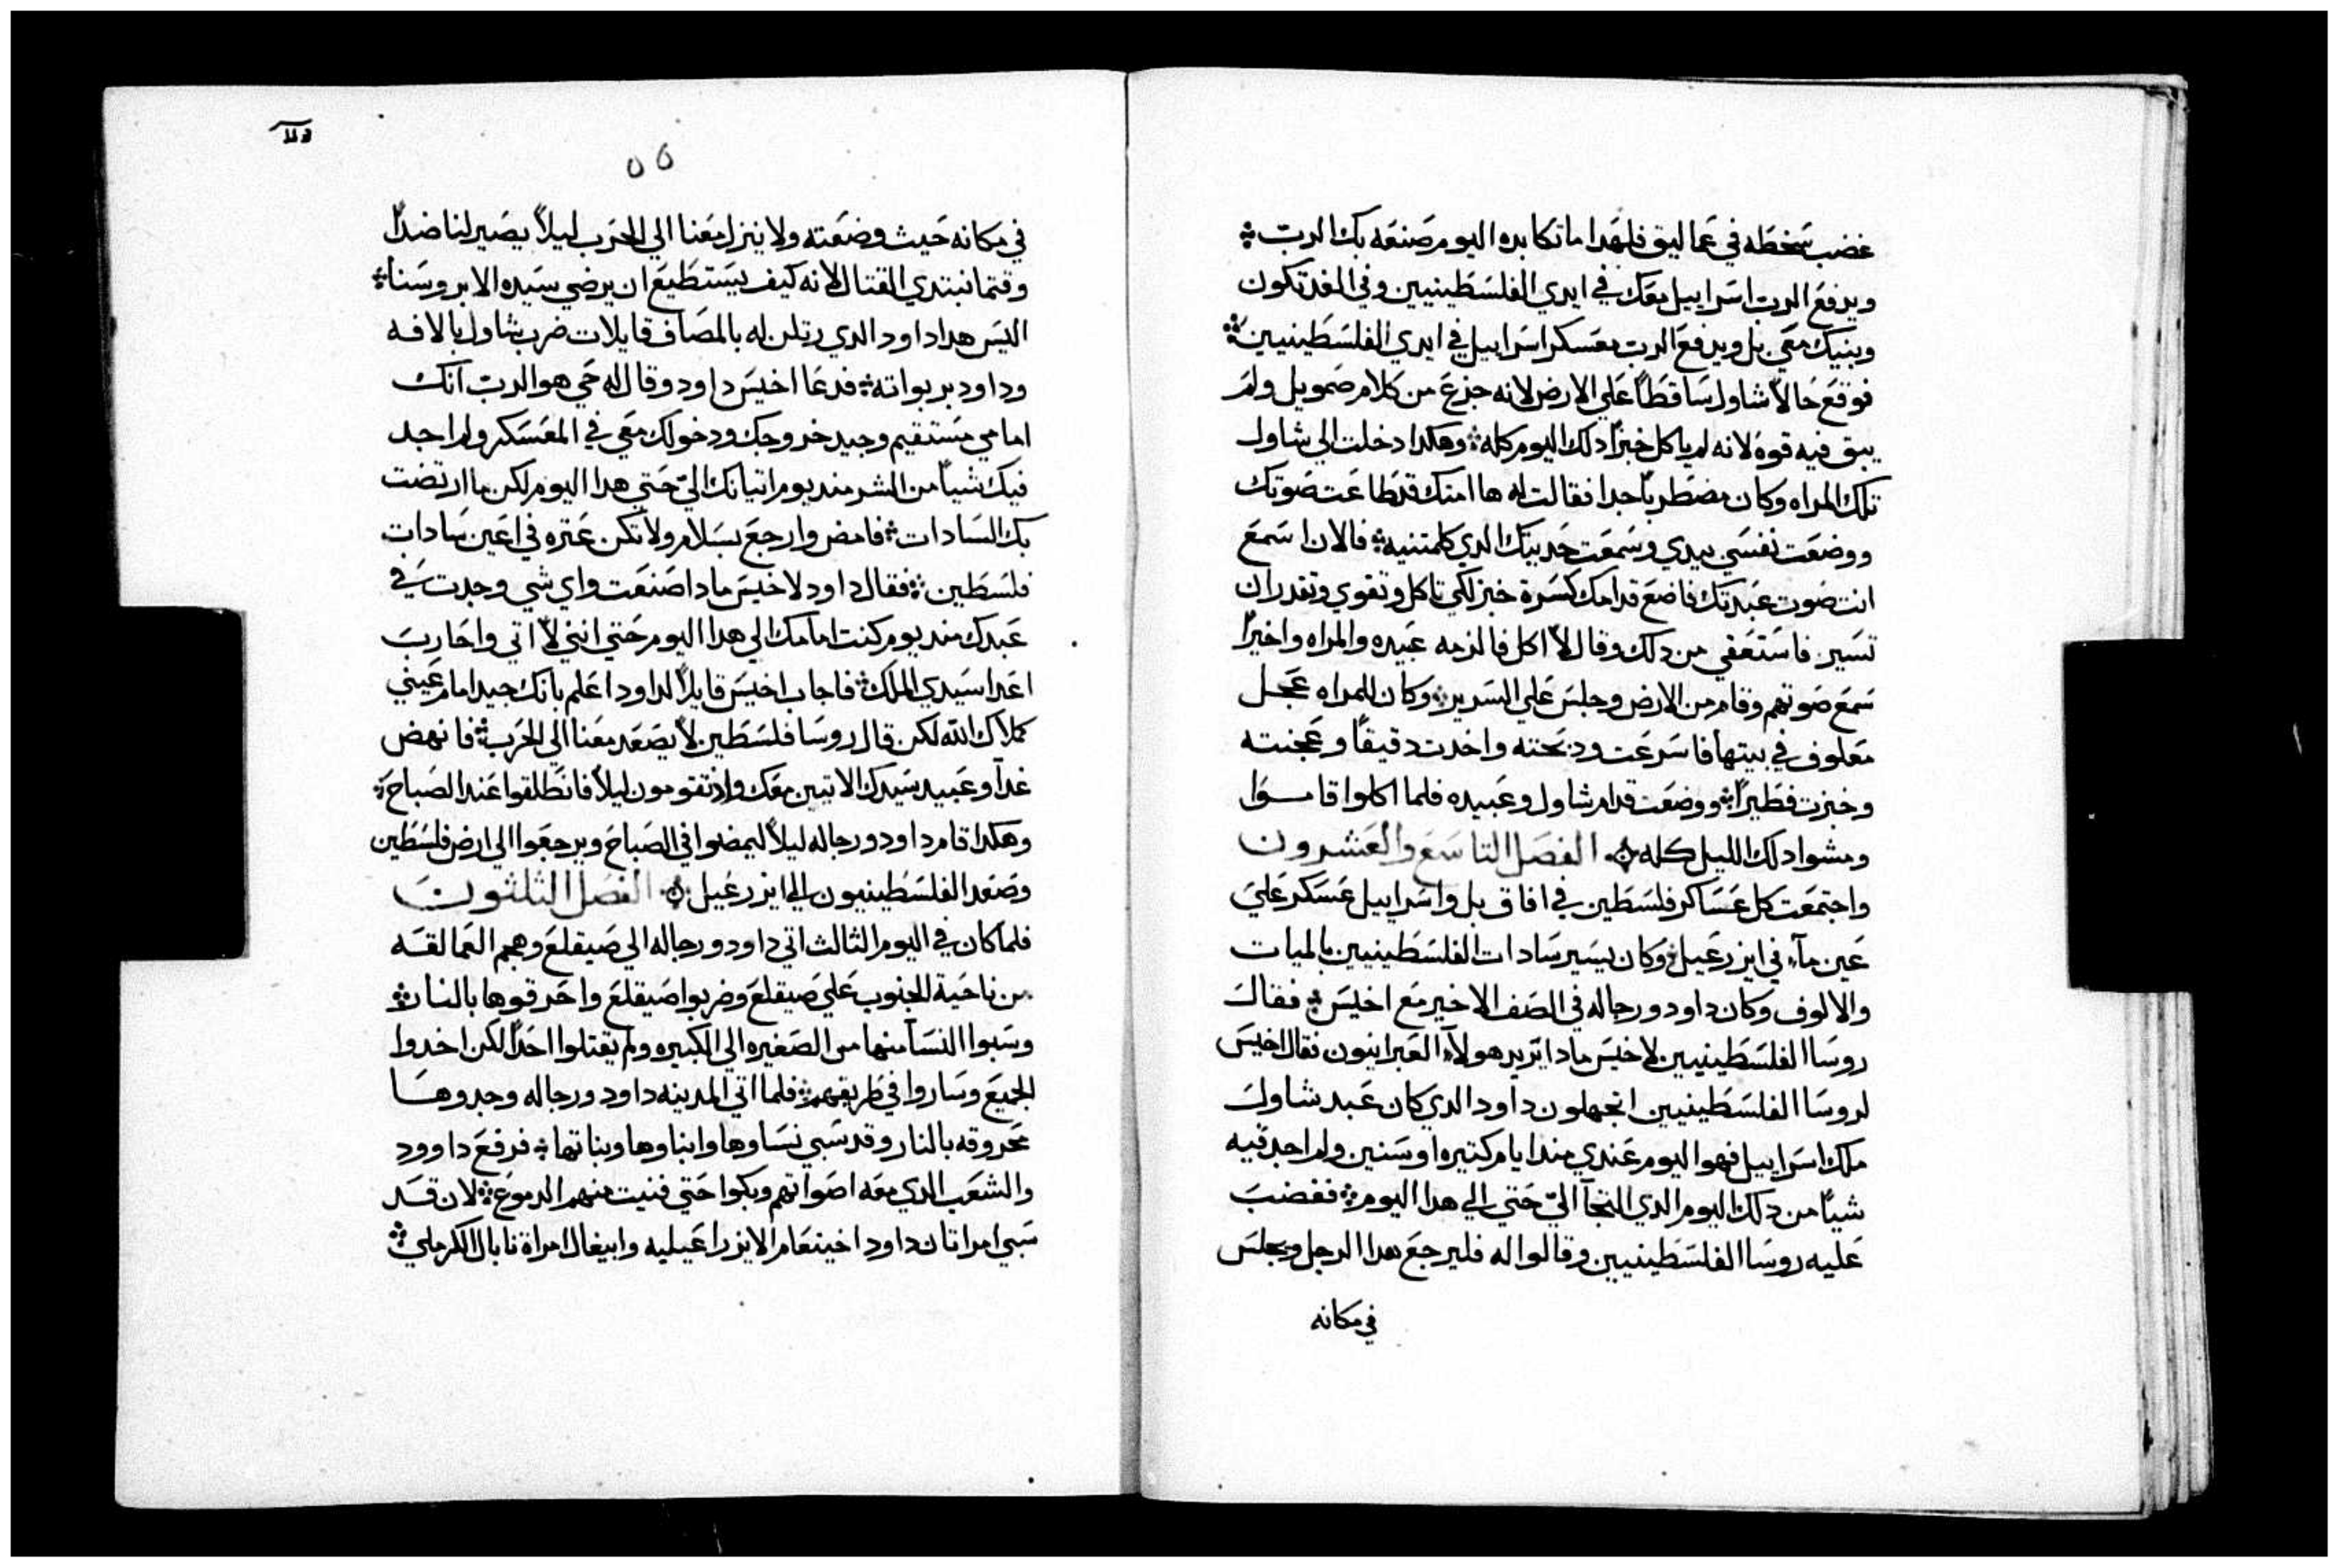 غضب سخطه في عماليق فلهدا ما تكابده اليوم صنعه بك الرب ܀
ويدفع الرب اسراييل معك في ايدي الفلسطينيين وفي الغد تكون
وبنيك معي بل ويدفع الرب معسكر اسراييل في ايدي الفلسطينيين ܀
فوقع حالاً شاول ساقطاً علي الارض لانه جزع من كلام صمويل ولم
يبق فيه قوه لانه لم ياكل خبزاً دلك اليوم كله ܀ وهكدا دخلت الي شاول
تلك المراه وكان مضطرباً جدا فقالت له ها امتك قد طاعت صوتك
ووضعت نفسي بيدي وسمعت حديتك الدي كلمتنيه ܀ فالان اسمع
انت صوت عبدتك فاضع قدامك كسرة خبز لكي تاكل وتقوي وتقدر ان
تسير فاستعفي من دلك وقال لا اكل فالزمه عبيده والمراه واخيراً
سمع صوتهم وقام من الارض وجلس علي السرير ܀ وكان للمراه عجل
معلوف في بيتها فاسرعت ودبحته واخدت دقيقاً وعجنته
وخبزت فطيراً ܀ ووضعت قدام شاول وعبيده فلما اكلوا قاموا
ومشوا دلك الليل كله ܀ الفصل التاسع والعشرون
واجتمعت كل عساكر فلسطين في افاق بل واسراييل عسكر علي
عين مآء في ايزرعيل ܀ وكان يسير سادات الفلسطينيين بالميات
والالوف وكان داود ورجاله في الصف الاخير مع اخيس ܀ فقال
روسا الفلسطينيين لاخيس مادا تريد هولآء العبرانيون فقال اخيس
لروسا الفلسطينيين اتجهلون داود الدي كان عبد شاول
ملك اسراييل فهوا اليوم عندي مند ايام كتيره او سنين ولم اجد فيه
شياً من دلك اليوم الدي التجآ اليّ حتي الي هدا اليوم ܀ فغضب
عليه روسا الفلسطينيين وقالوا له فليرجع هدا الرجل ويجلس
في مكانه
٥٥
في مكانه حيث وضعته ولا ينزل معنا الي الحرب ليلاً يصير لنا ضداً
وقتما نبتدي القتال لانه كيف يستطيع ان يرضي سيده الا بروسنا ܀
اليس هدا داود الدي رتلن له بالمصاف قايلات ضرب شاول بالافه
وداود بربواته ܀ فدعا اخيس داود وقال له حي هو الرب انك
امامي مستقيم وجيد خروجك ودخولك معي في المعسكر ولم اجد
فيك شياً من الشر مند يوم اتيانك اليّ حتي هدا اليوم لكن ما ارتضت
بك السادات ܀ فامض وارجع بسلام ولا تكن عتره في اعين سادات
فلسطين ܀ فقال داود لاخيس مادا صنعت واي شي وجدت في
عبدك مند يوم كنت امامك الي هدا اليوم حتي انني لا اتي واحارب
اعدا سيدي الملك ܀ فاجاب اخيس قايلاً لداود اعلم بانك جيد امام عيني
كملاك الله لكن قال روسا فلسطين لا يصعد معنا الي الحرب ܀ فانهض
غداً وعبيد سيدك الاتيين معك واد تقومون ليلاً فانطلقوا عند الصباح ܀
وهكدا قام داود ورجاله ليلاً ليمضوا في الصباح ويرجعوا الي ارض فلسطين
وصعد الفلسطينيون الي ايزرعيل ܀ الفصل الثلثون
فلما كان في اليوم الثالث اتي داود ورجاله الي صيقلع وهجم العمالقه
من ناحية الجنوب علي صيقلع وضربوا صيقلع واحرقوها بالنار ܀
وسبوا النسا منها من الصغيره الي الكبيره ولم يقتلوا احداً لكن اخدوا
الجميع وساروا في طريقهم ܀ فلما اتي المدينه داود ورجاله وجدوها
محروقه بالنار وقد سبي نساوها وابناوها وبناتها ܀ فرفع داوود
والشعب الدي معه اصواتهم وبكوا حتي فنيت منهم الدموع ܀ لان قد
سبي امراتان داود اخينعام الايزراعيليه وابيغال امراة نابال الكرملي ܀